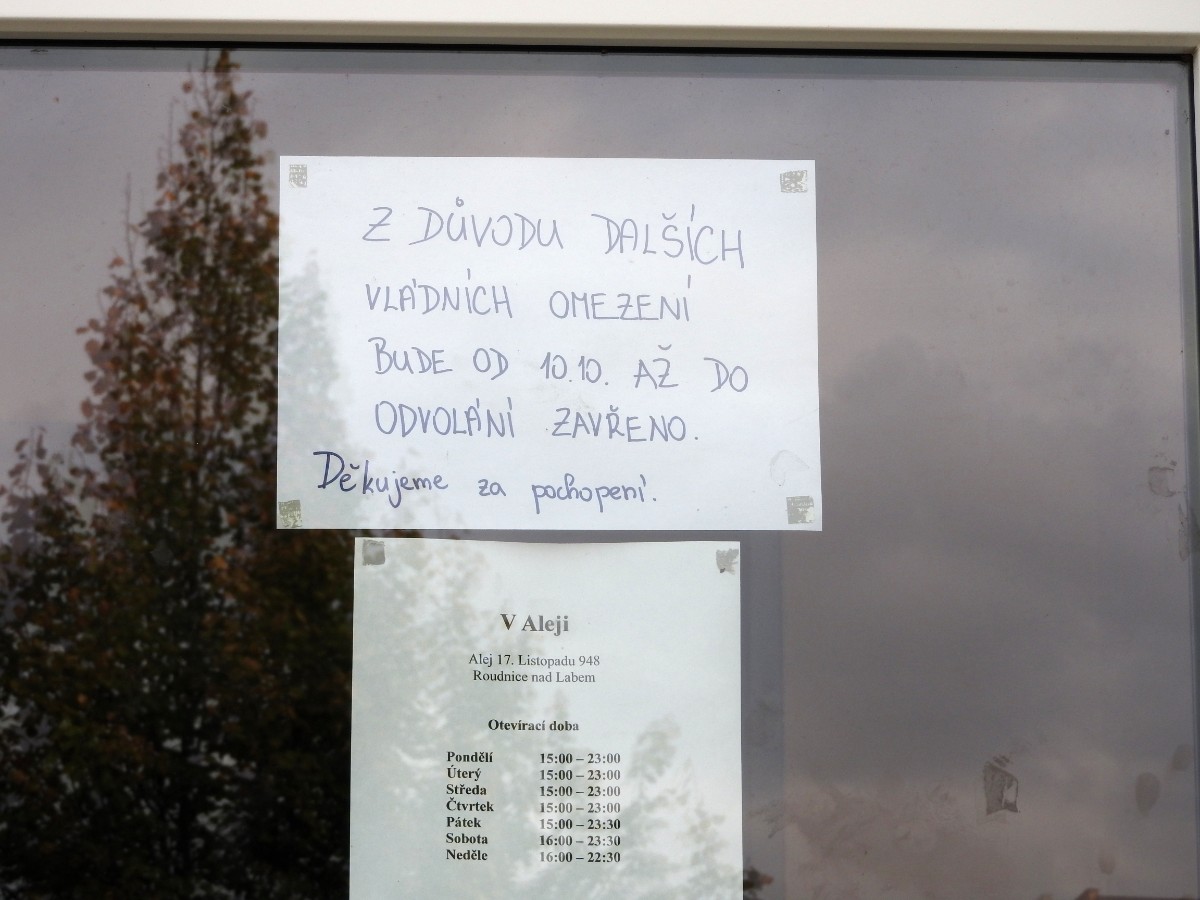 Z DŮVODU DALŠÍCH
VLÁDNÍCH OMEZENÍ
BUDE OD 10.10. AŽ DO
ODVOLÁNÍ ZAVŘENO.
Děkujeme za pochopení.
V Aleji
Alej 17. Listopadu 948
Roudnice nad Labem
Otevírací doba
Pondělí 15:00 – 23:00
Úterý 15:00 – 23:00
Středa 15:00 – 23:00
Čtvrtek 15:00 – 23:00
Pátek 15:00 – 23:30
Sobota 16:00 – 23:30
Neděle 16:00 – 22:30